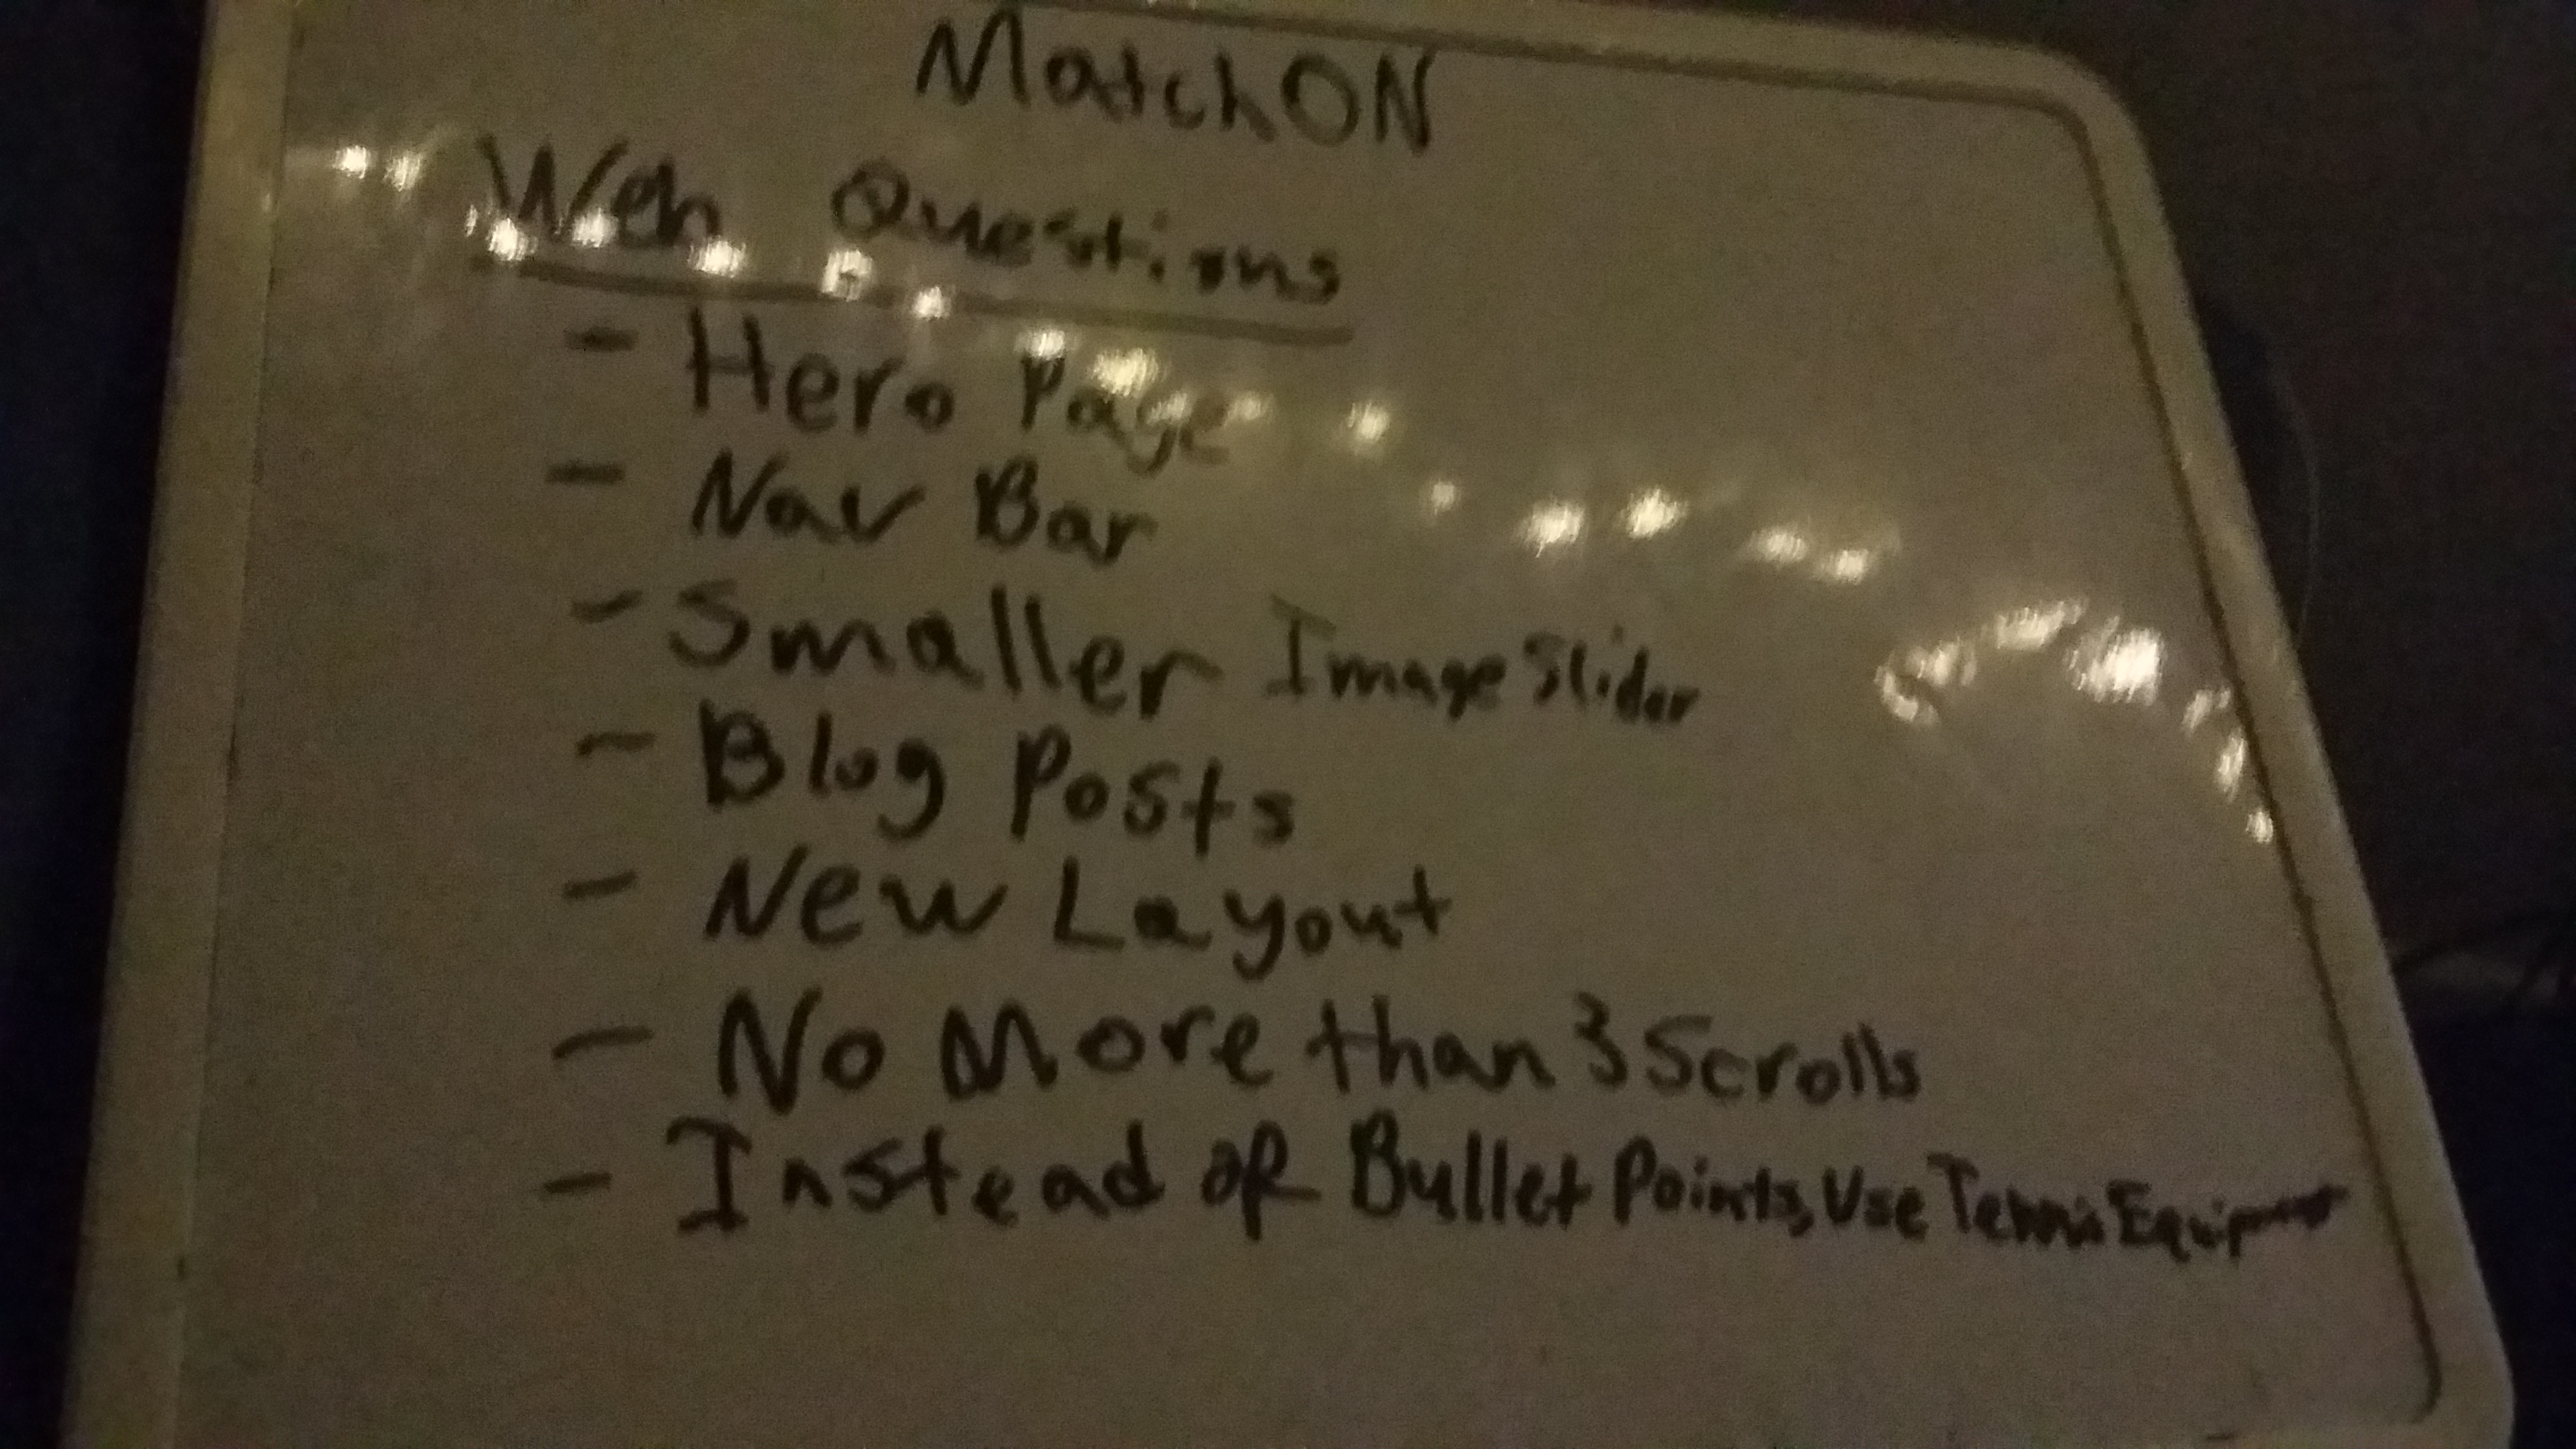 MatchON
Web Questions
- Hero Page
- Nav Bar
- Smaller Image Slider
- Blog Posts
- New Layout
- No More than 3 Scrolls
- Instead of Bullet Points, Use Tennis Equipment